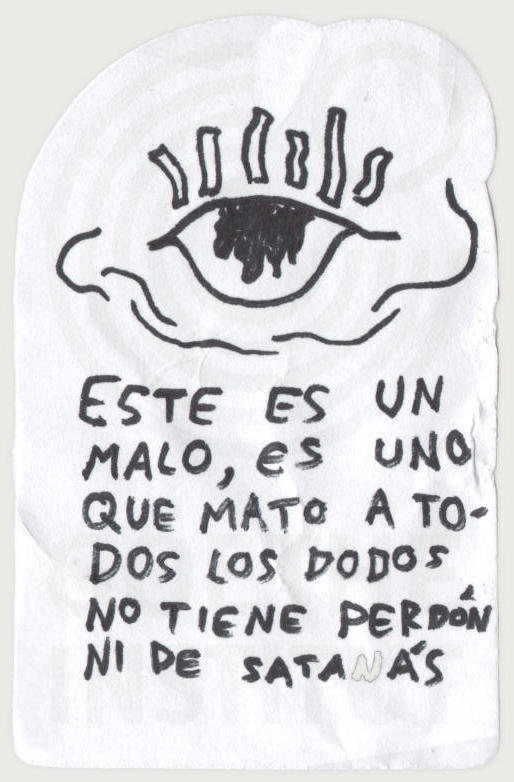 ESTE ES UN
MALO, eS UNO
QUE MATO A TO-
DOS LOS DODOS
NO TIENE PERDÓN
NI DE SATANÁS